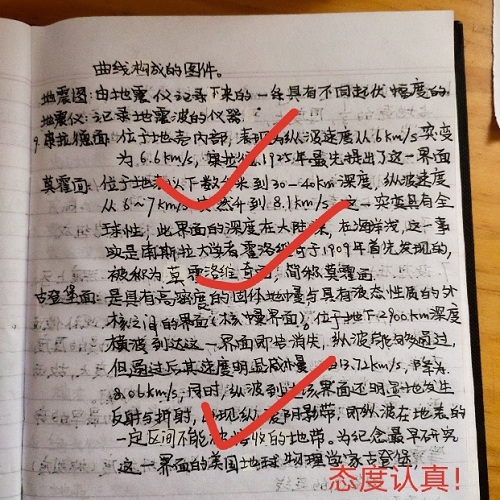 曲线构成的图件。
地震图:由地震仪记录下来的一条具有不同起伏幅度的
地震仪:记录地震波的仪器。
9.康拉德面:位于地壳内部,表现为纵波速度从6km/s突变
为6.6km/s,康拉德1925年最先提出了这一界面
莫霍面:位于地表以下数公里到30-40km深度,纵波速度
从6~7km/s突然升到8.1km/s 这一突变具有全
球性,此界面的深度在大陆深,在海洋浅,这一事
实是南斯拉夫学者霍洛维奇于1909年首先发现的,
被称为莫霍洛维奇面,简称莫霍面
古登堡面:是具有高密度的固体地幔与具有液态性质的外
核之间的界面(核幔界面),位于地下2900km深度
横波到达这一界面即告消失,纵波能够通过,
但通过后其速度明显减慢 13.72km/s,降为
8.06km/s,同时,纵波到达该界面还明显地发生
反射与折射,出现纵波阴影带,即纵波在地表的
一定区间不能被接收的地带。为纪念最早研究
这一界面的美国地球物理学家古登堡,
态度认真!